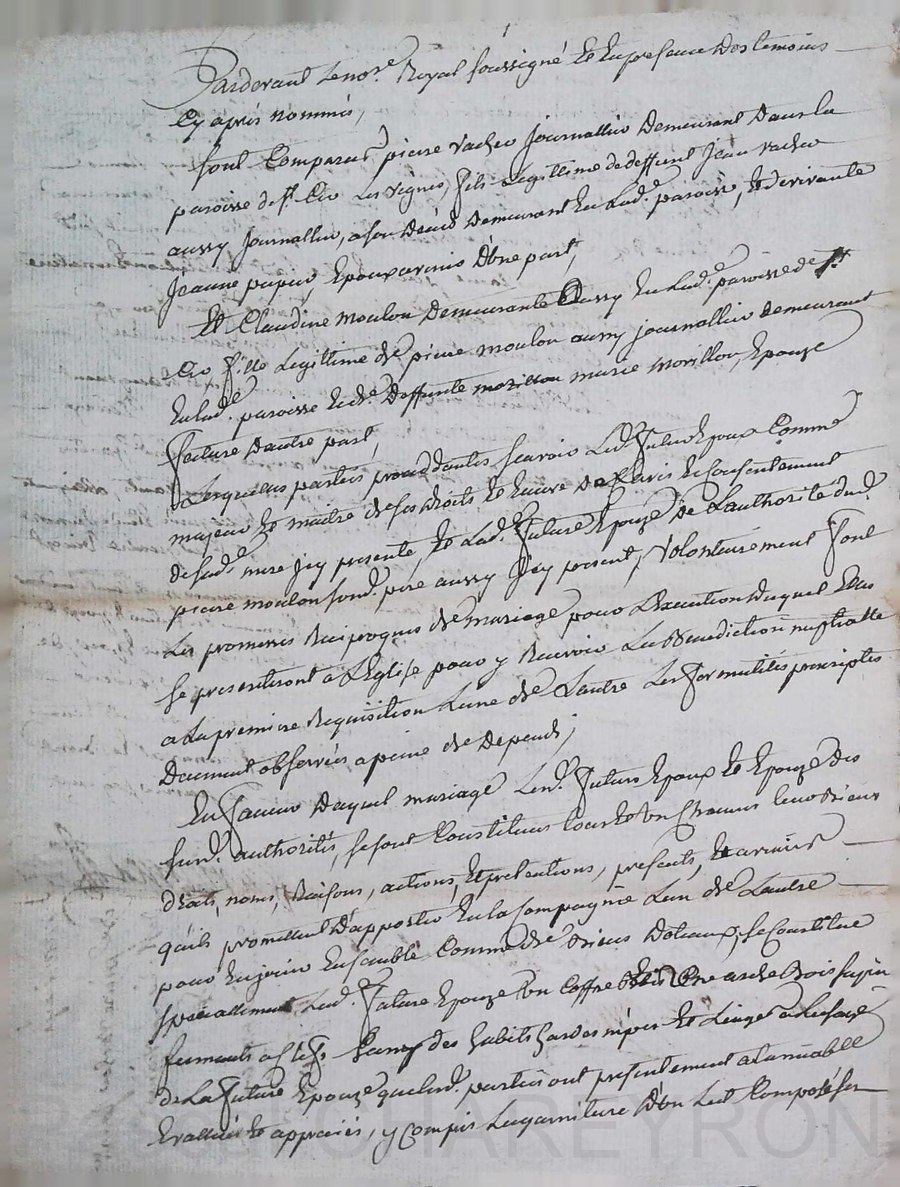 Pardevant Le nore. Royal soussigné Et En presence Des temoins
Cy aprés nommés,
Sont Comparus pierre vacher Journallier Demeurant Dans la
paroisse de st. Cir Les vignes, fils Legittime de deffunt Jean vacher
aussy Journallier, a son Deces Demeurant En Lad. paroisse, Et de vivante
Jeanne papier, Epoux avenir D'une part,
Et Claudine moulon Demeurante Aussy En Lad. paroisse de st
Cir fille Legittime de pierre moulon aussy journallier demeurant
En Lad. paroisse Et de Deffunte marie morillon, Epouze
future D'autre part,
Lesquelles parties, proceddantes scavoir Led. futur Epoux Comme
majeur Et maitre de ses droits Et Encore De L'avis Et Consentement
de sad. mere Icy presente, Et Lad. future Epouze De L'authorité dud.
pierre moulon sond. pere aussy Icy present, Volontairement font
Les promesses Reciproques de mariage pour L'Execution Duquel Elles
se presenteront a L'Eglise pour y Recevoir La Benediction nuptialle
a La premiere Requisition L'une de L'autre Les formalités prescriptes
Duement observées a peine de Depends,
En faveur Duquel mariage Lesd. futurs Epoux Et Epouze des
susd. authorités, se sont Constitués tous Et un Chacuns Leurs Biens
droits, noms, Raisons, actions, Et pretentions, presents, Et avenir
qu'ils promettent D'apporter En La Compagnie L'un de L'autre
pour En jouir Ensemble Comme de Biens Dotaux, se Constitue
specialement Lad. future Epouze un Coffre Bois sapin
fermants a Clefs des habits hardes nipes Et Linges a L'usage
de La future Epouze que Lesd. parties ont presentement a L'amiable
Evallués Et appreciés, y Compris La garniture D'un Lit Composée
CHAREYRON